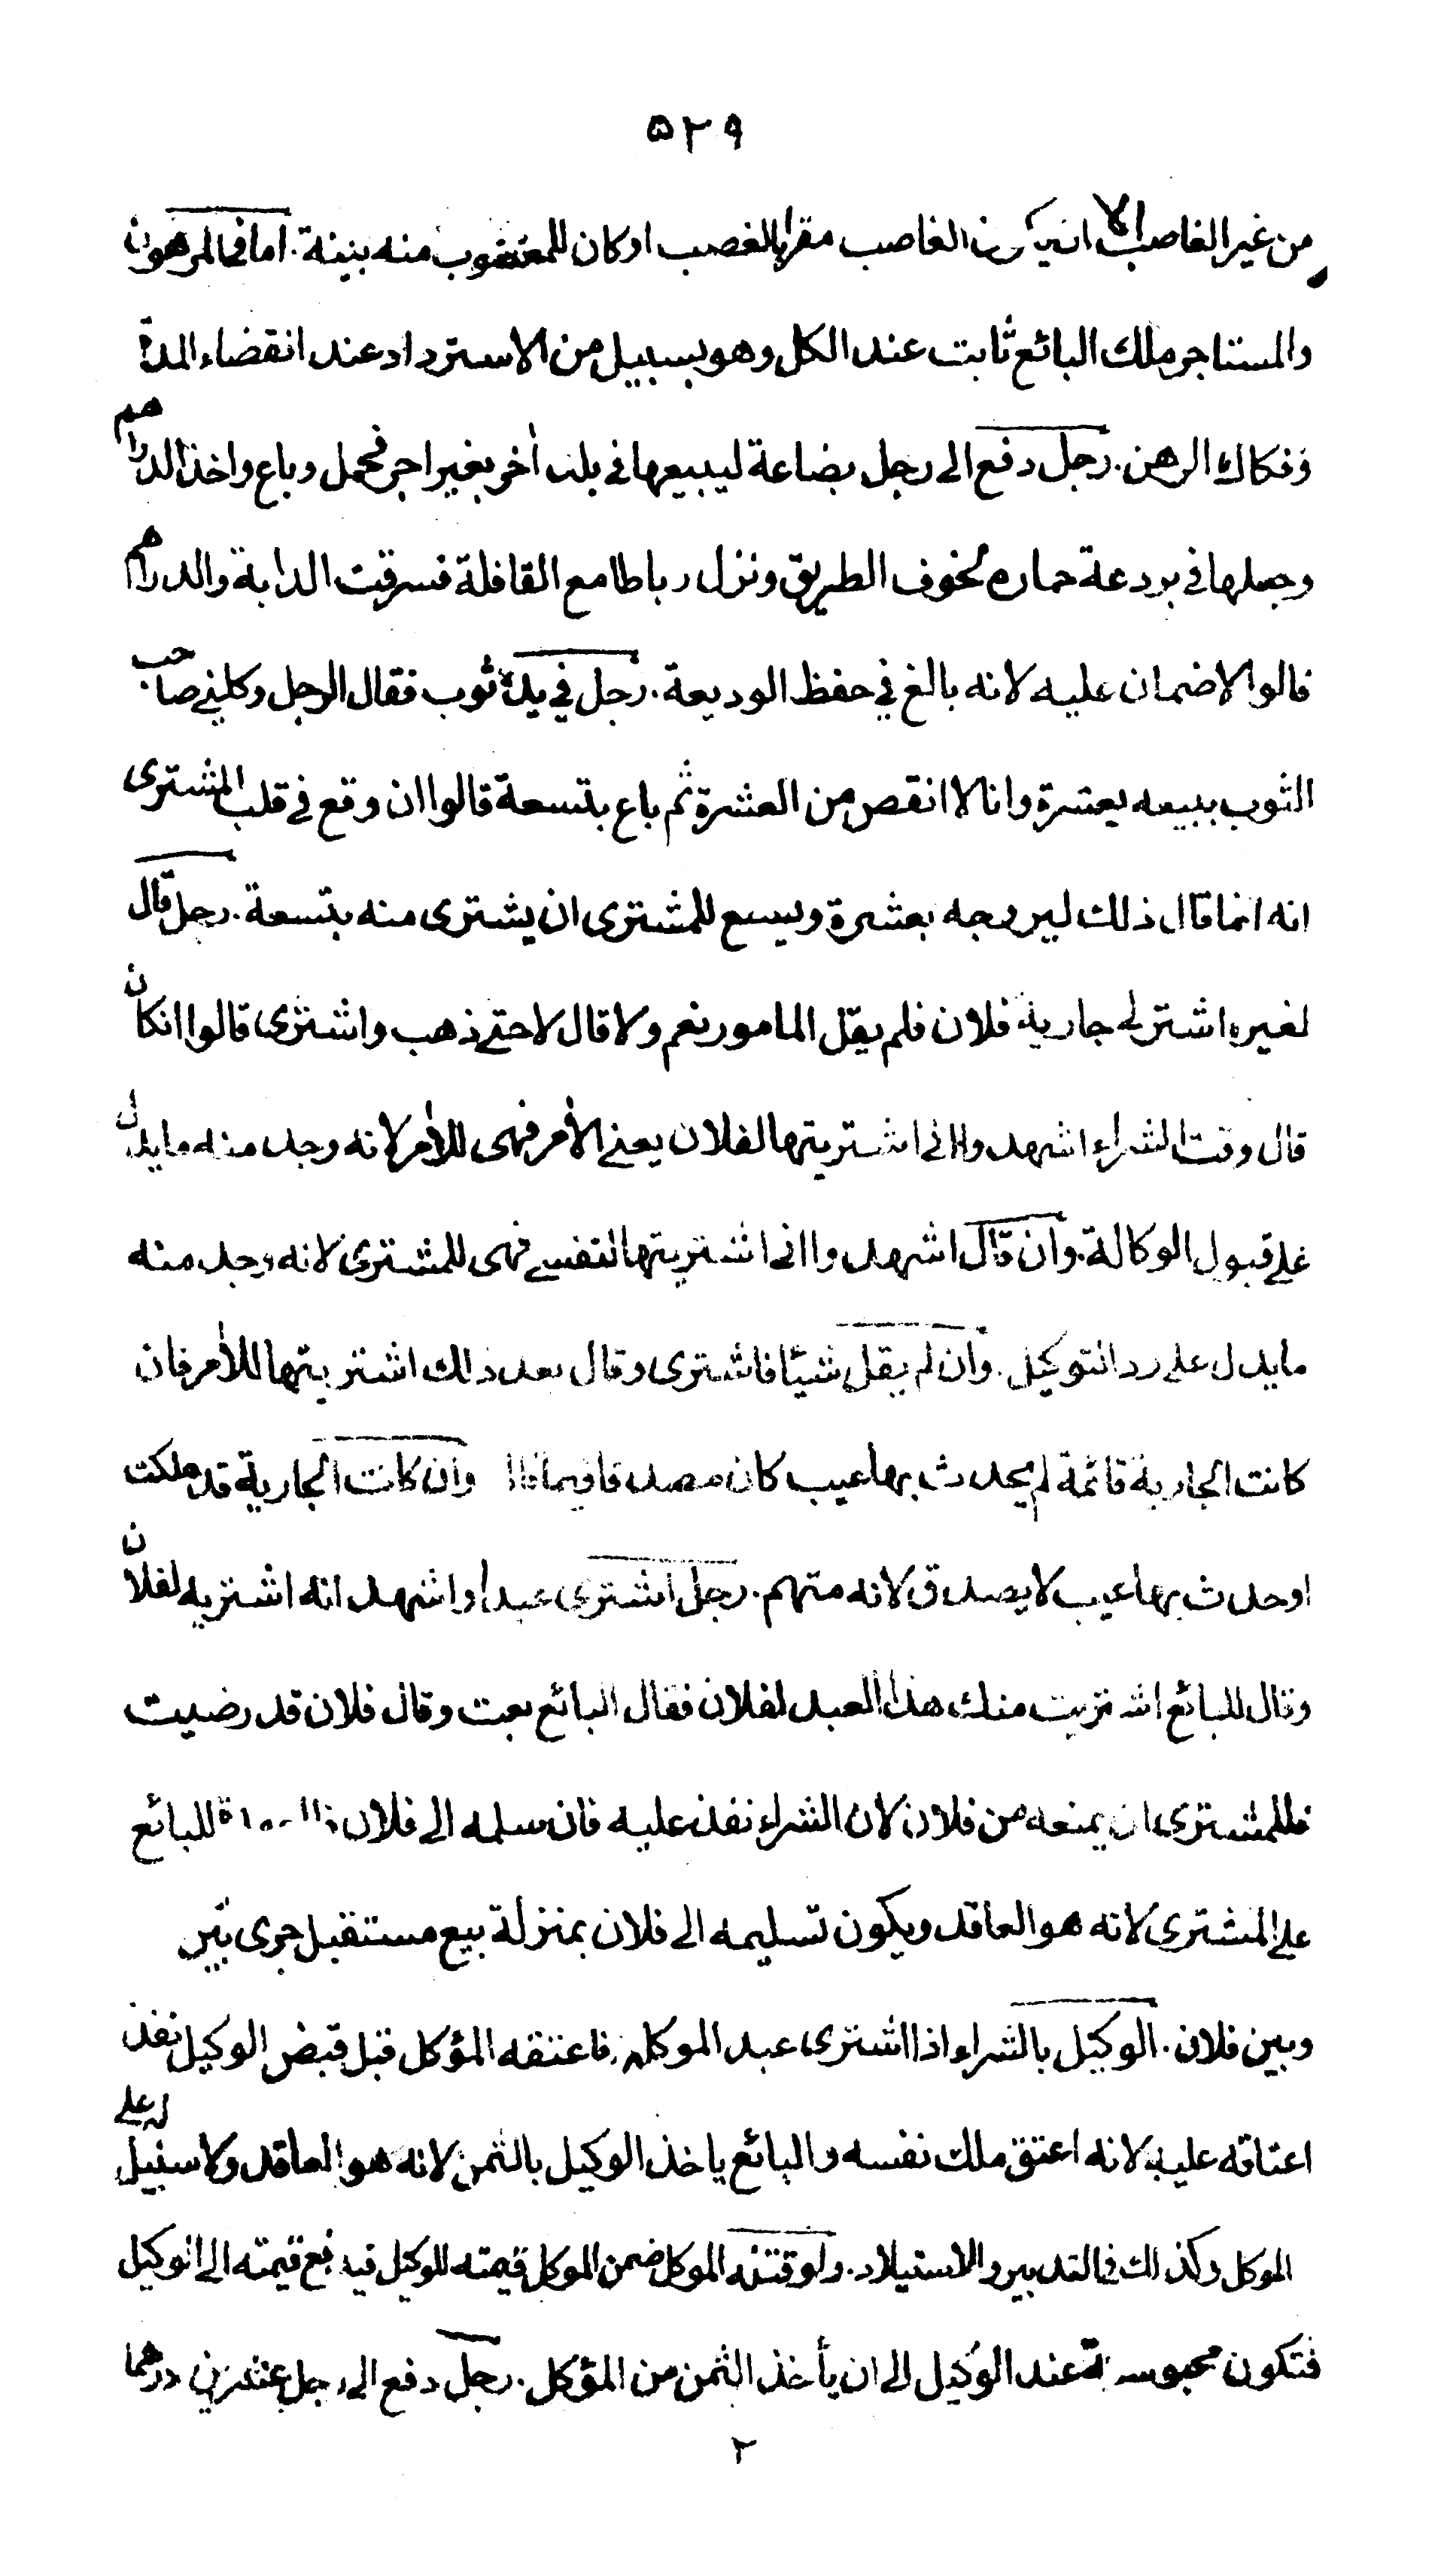 ٥٢٩
من غير الغاصب الا ان يكون الغاصب مقرا بالغصب او كان للمغصوب منه بينة. اما في المرهون
والمستاجر ملك البائع ثابت عند الكل وهو بسبيل من الاسترداد عند انقضاء المدة
وفكاك الرهن. رجل دفع الى رجل بضاعة ليبيعها في بلد أخر بغير اجر فحمل وباع واخذ الدراهم
وجعلها في بردعة حماره لخوف الطريق ونزل رباطا مع القافلة فسرقت الدابة والدراهم
قالوا لاضمان عليه لانه بالغ في حفظ الوديعة. رجل في يده ثوب فقال الرجل وكلني صاحب
الثوب ببيعه بعشرة وانا لا انقص من العشرة ثم باع بتسعة قالوا ان وقع في قلب المشترى
انه انما قال ذلك ليروجه بعشرة ويسع للمشترى ان يشترى منه بتسعة. رجل قال
لغيره اشتر لي جارية فلان فلم يقل المامور نعم ولا قال لا حتى ذهب واشترى قالوا انكان
قال وقت الشراء اشهدوا انى اشتريتها لفلان يعنى الأمر فهى للأمر لانه وجد منه مايدل
على قبول الوكالة. وان قال اشهدوا انى اشتريتها لنفسى فهى للمشترى لانه وجد منه
مايدل على رد التوكيل. وان لم يقل شيئا فاشترى وقال بعد ذلك اشتريتها للأمر فان
كانت الجارية قائمة لم يحدث بها عيب كان مصدقا فيما وان كانت الجارية قد هلكت
او حدث بها عيب لا يصدق لانه متهم. رجل اشترى عبدا واشهد انه اشتريه لفلان
وقال للبائع اشتريت منك هذا العبد لفلان فقال البائع بعت وقال فلان قد رضيت
فللمشترى ان يمنعه من فلان لان الشراء نفذ عليه فان سلمه الى فلان للبائع
على المشترى لانه هو العاقد ويكون تسليمه الى فلان بمنزلة بيع مستقبل جرى بين
وبين فلان. الوكيل بالشراء اذا اشترى عبد الموكله فاعتقه المؤكل قبل قبض الوكيل نفذ
اعتاقه عليه لانه اعتق ملك نفسه والبائع ياخذ الوكيل بالثمن لانه هو العاقد ولا سبيل له على
الموكل وكذلك في التدبير والاستيلاد. ولو قتله الموكل ضمن الموكل قيمته للوكيل فيدفع قيمته الى الوكيل
فتكون محبوسة عند الوكيل الى ان يأخذ الثمن من المؤكل. رجل دفع الى رجل عشرين درهما
٢